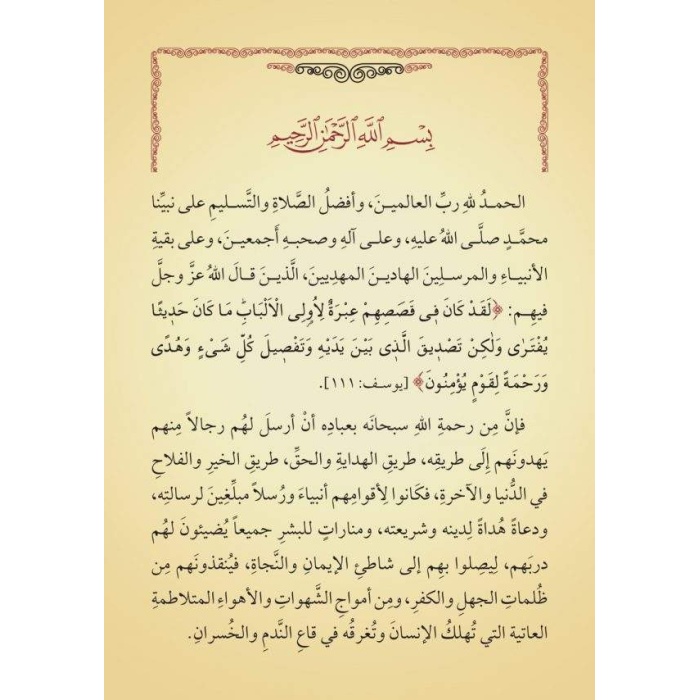 بِسْمِ ٱللَّهِ ٱلرَّحْمَٰنِ ٱلرَّحِيمِ
الحمـدُ للهِ ربِّ العالميـنَ، وأفضلُ الصَّلاةِ والتَّسـليمِ على نبيِّنا
محمَّـدٍ صلَّـى اللهُ عليهِ، وعلـى آلهِ وصحبـهِ أجمعيـنَ، وعلى بقيةِ
الأنبيـاءِ والمرسـلينَ الهاديـنَ المهديينَ، الَّذيـنَ قـالَ اللهُ عزَّ وجلَّ
فيهِـم: ﴿لَقَدْ كَانَ فِي قَصَصِهِمْ عِبْرَةٌ لِأُولِي الْأَلْبَابِ مَا كَانَ حَدِيثًا
يُفْتَرَى وَلَكِنْ تَصْدِيقَ الَّذِي بَيْنَ يَدَيْهِ وَتَفْصِيلَ كُلِّ شَيْءٍ وَهُدًى
وَرَحْمَةً لِقَوْمٍ يُؤْمِنُونَ﴾ [يوسـف: ١١١].
فإنَّ مِن رحمةِ اللهِ سبحانَه بعبادِه أنْ أرسلَ لهُم رجالاً مِنهم
يَهدونَهم إلَى طريقِه، طريقِ الهدايةِ والحقِّ، طريقِ الخيرِ والفلاحِ
في الدُّنيا والآخرةِ، فكَانوا لِأقوامِهم أنبياءَ ورُسلاً مبلِّغينَ لرسالتِه،
ودعاةً هُداةً لِدينه وشريعته، ومناراتٍ للبشرِ جميعاً يُضيئونَ لهُم
دربَهم، لِيصِلوا بهِم إلى شاطئِ الإيمانِ والنَّجاةِ، فيُنقذونَهم مِن
ظُلماتِ الجهلِ والكفرِ، ومِن أمواجِ الشَّهواتِ والأهواءِ المتلاطمةِ
العاتية التي تُهلكُ الإنسانَ وتُغرقُه في قاعِ النَّدمِ والخُسرانِ.